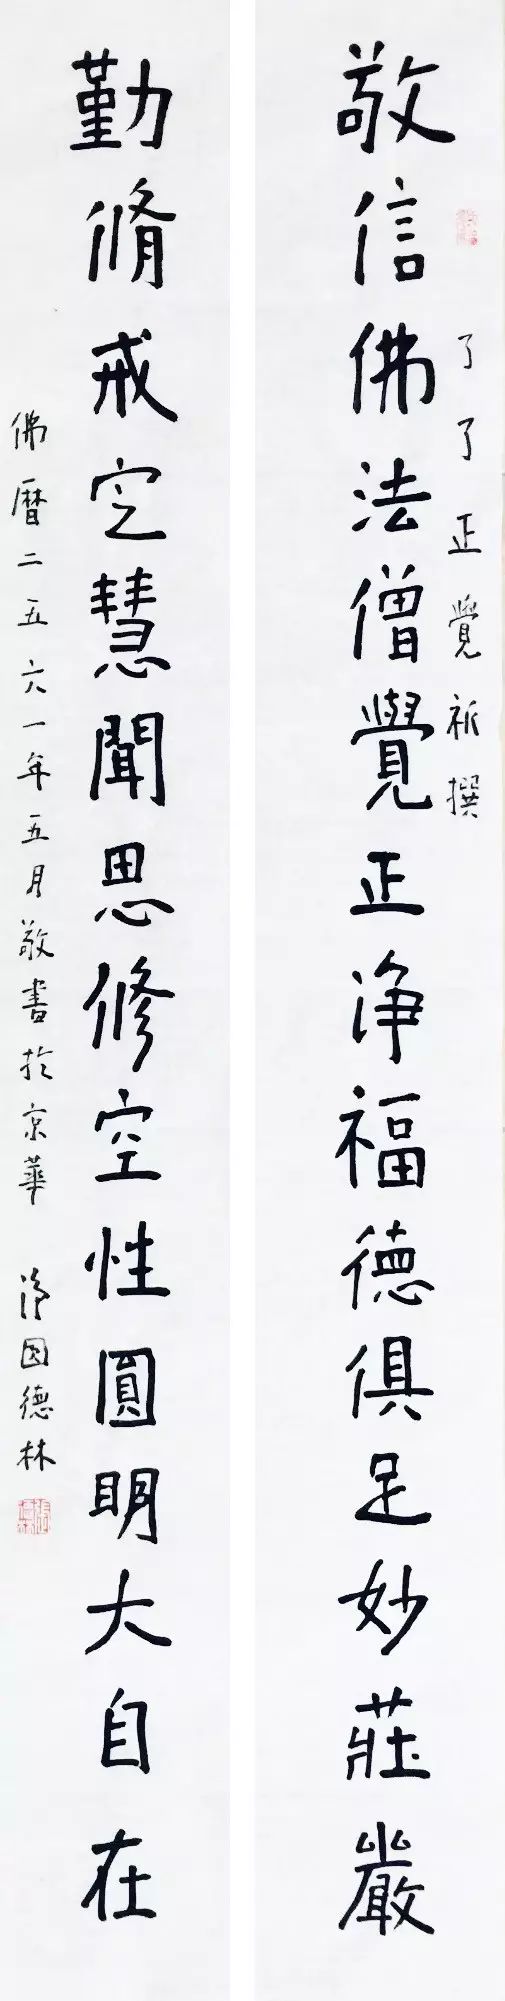 敬信佛法僧覺正净福德俱足妙莊嚴
了了正覺祈撰
勤脩戒定慧聞思修空性圓明大自在
佛曆二五六一年五月敬書於京華 淨因德林